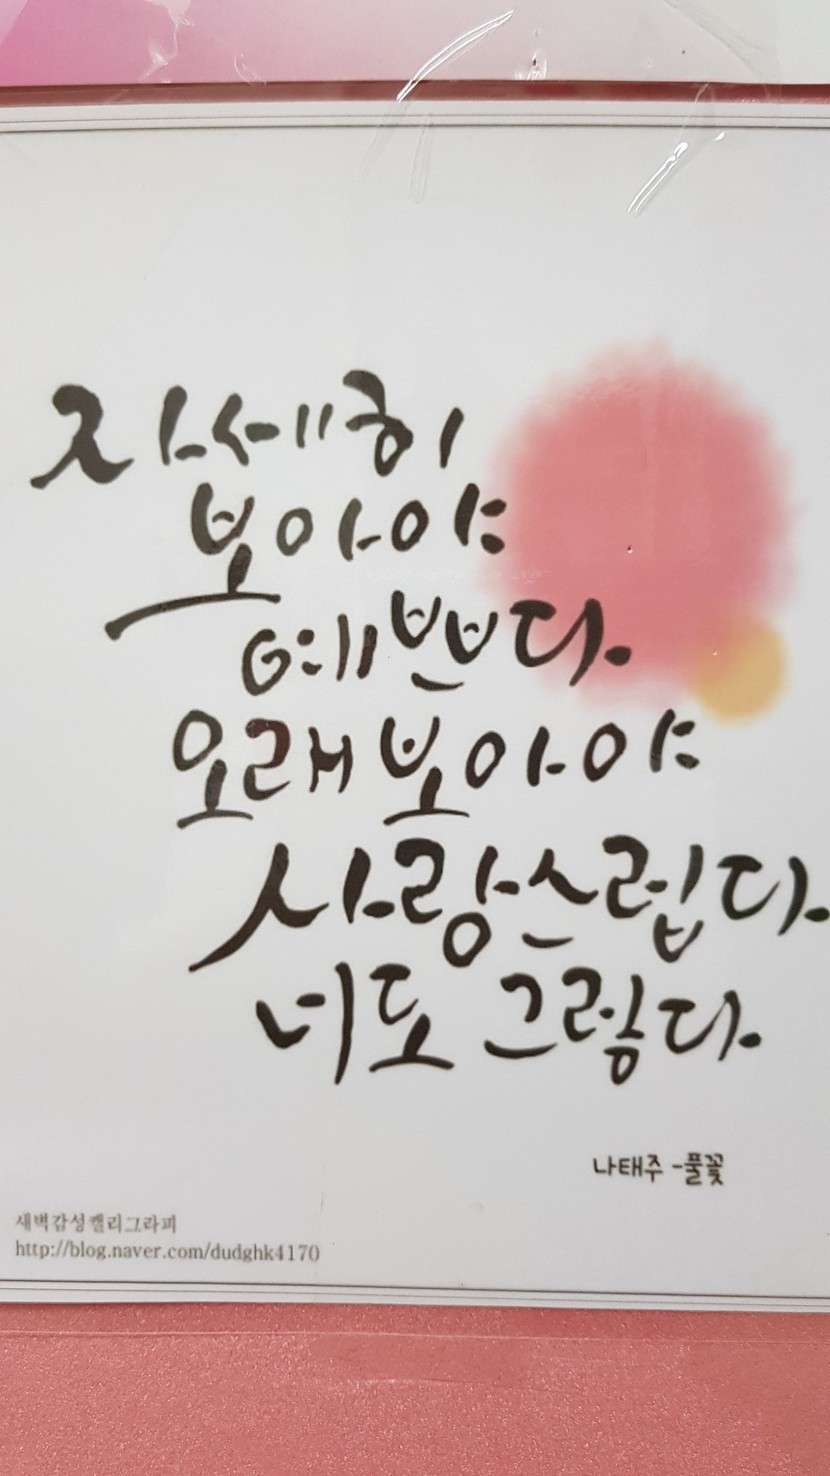 자세히
보아야
예쁘다.
오래 보아야
사랑스럽다.
너도 그렇다.
나태주 -풀꽃
새벽감성캘리그라피
http://blog.naver.com/dudghk4170